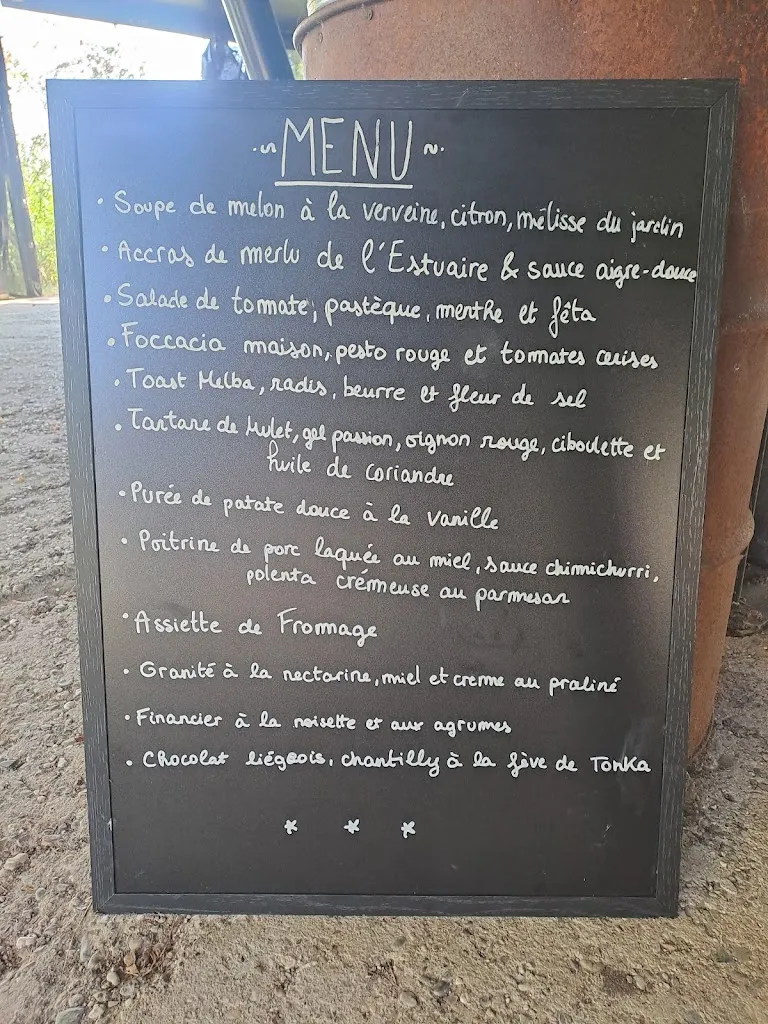 ~ MENU ~
• Soupe de melon à la verveine, citron, mélisse du jardin
• Accras de merlu de l'Estuaire & sauce aigre-douce
• Salade de tomate, pastèque, menthe et fêta
• Foccacia maison, pesto rouge et tomates cerises
• Toast Melba, radis, beurre et fleur de sel
• Tartare de Mulet, gel passion, oignon rouge, ciboulette et
huile de coriandre
• Purée de patate douce à la vanille
• Poitrine de porc laquée au miel, sauce chimichurri,
polenta crémeuse au parmesan
• Assiette de Fromage
• Granité à la nectarine, miel et creme au praliné
• Financier à la noisette et aux agrumes
• Chocolat liégeois, chantilly à la fève de Tonka
* * *